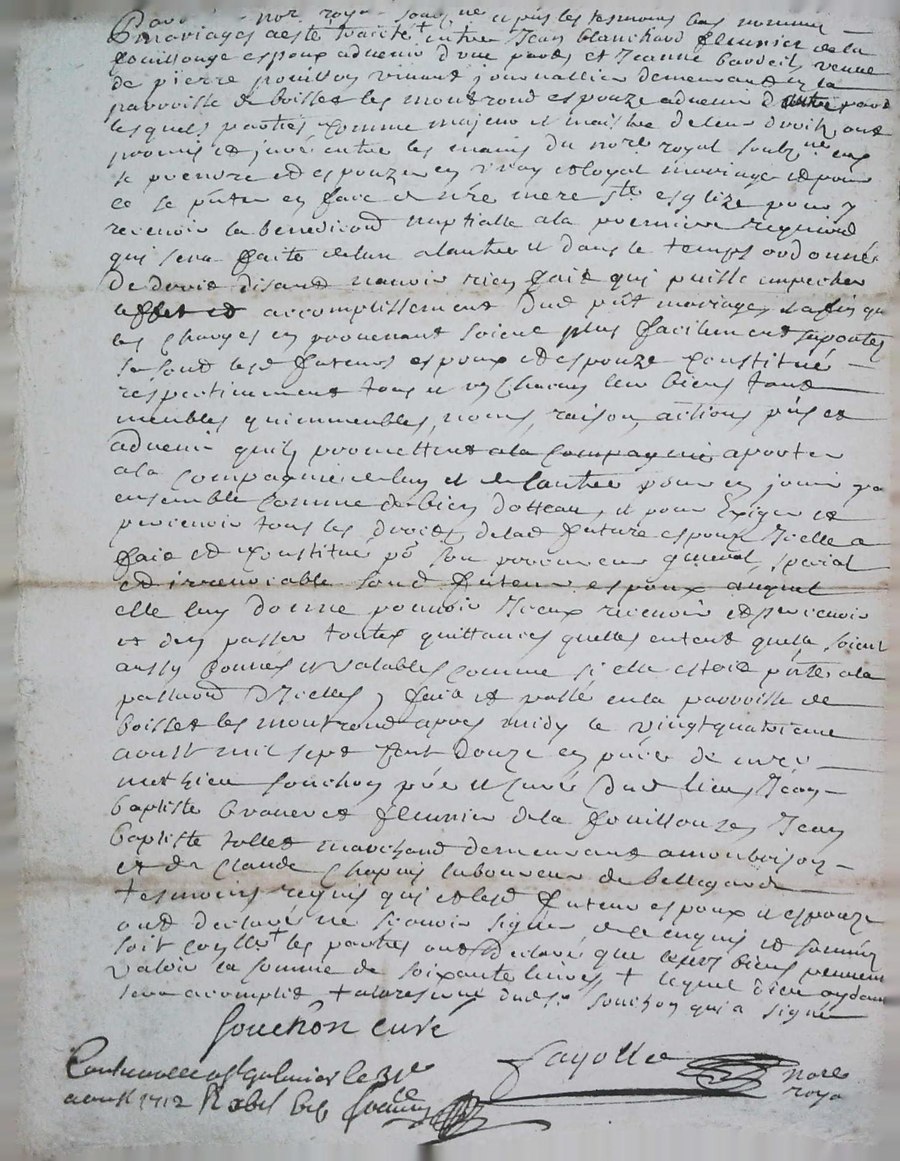 Pard nore royal soubz ne et pñts les tesmoins bas nommés
mariages a esté traité + entre Jean blanchard fleurier de la
fouillouze espoux advenir d'une pard et Jeanne bardeil veuve
de pierre pouillon vivant journallier demeurand en la
parroisse de boisset les montrond espouze advenir d'autre pard
lesquels parties comme majeur et maistre de leur droits ont
promis et juré entre les mains du nore royal soubzne eux
se prendre et espouzer en vray et loyal mariage et pour
ce se pñter en face de nre mere ste esglize pour y
recevoir la benediction nuptialle a la premiere requisiõ
qui sera faite de lun a lautre et dans le temps ordonné
de droit disand navoir rien fait qui puisse empecher
leffet et accomplissement dud pñt mariage et afin que
les charges en provenant soient plus facilement suportés
se sond lesd futeurs espoux et espouze constitué
respectivement tous et un chacun leur biens tand
meubles quimmeubles, noms, raison, actions pñts et
advenir quils promettent a la compagnie aporter
a la compagnie de luy et de lautre pour en jouir
ensemble comme de bien dotteau, et pour exiger et
percevoir tous les droits de lad future espouze Icelle a
fait et constitué po son procureur general, special
et irrevocable sond futeur espoux auquel
elle luy donne pouvoir Iceux recevoir et percevoir
et den passer toutes quittances quelles entend quela soient
aussy bonnes et valables comme si elle estoit pñte a la
passation dIcelles, fait et passé en la parroisse de
boisset les montrond apres midy le vingtquatrieme
aoust mil sept cent douze en pñce de mre
mathieu souchon pre et curé dud lieu, Jean
baptiste fleurier de la fouillouze, Jean
baptiste tollet marchand demeurand a monbrison
et de Claude Chapuis laboureur de bellegarde
tesmoins requis qui et lesd futeur espoux et espouze
ont declaré ne scavoir signer de ce enquis et sommés
soit coller + les parties ont declaré que leurs biens peuvent
valoir la somme de soixante livres + lequel dieu aydant
sera accomplit + a la reserve dud sr souchon qui a signé
souchon curé
fayolle nore
royal
Controollé a st galmier le 31e
aoust 1712